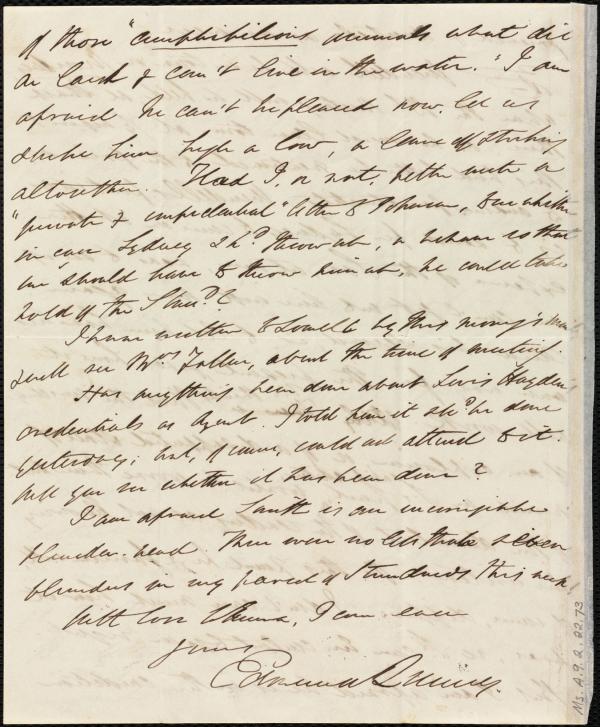 of those "amphibilious animals what die
on land & can't live in the water." I am
afraid he can't be pleased now, let us
strike him high or low, or leave off striking
altogether. Had I, or not, better write a
"private & confidential" letter to Johnson,
in case Sydney shd throw us, or behave so that
we should have to throw him, he could take
hold of the Stand?
I have written to Lowell by this morning's mail
will see Mrs Follen, about the time of meeting.
Has anything been done about Lewis Hayden's
credentials as Agent. I told him it shd be done
yesterday; but, of course, could not attend to it.
Will you see whether it has been done?
I am afraid Smith is an incorrigible
blunder-head. There were no less than seven
blunders in my parcel of Standards this week!
With love to Emma, I am ever
Yours
Edmund Quincy.
Ms. A.9.2. 22.73